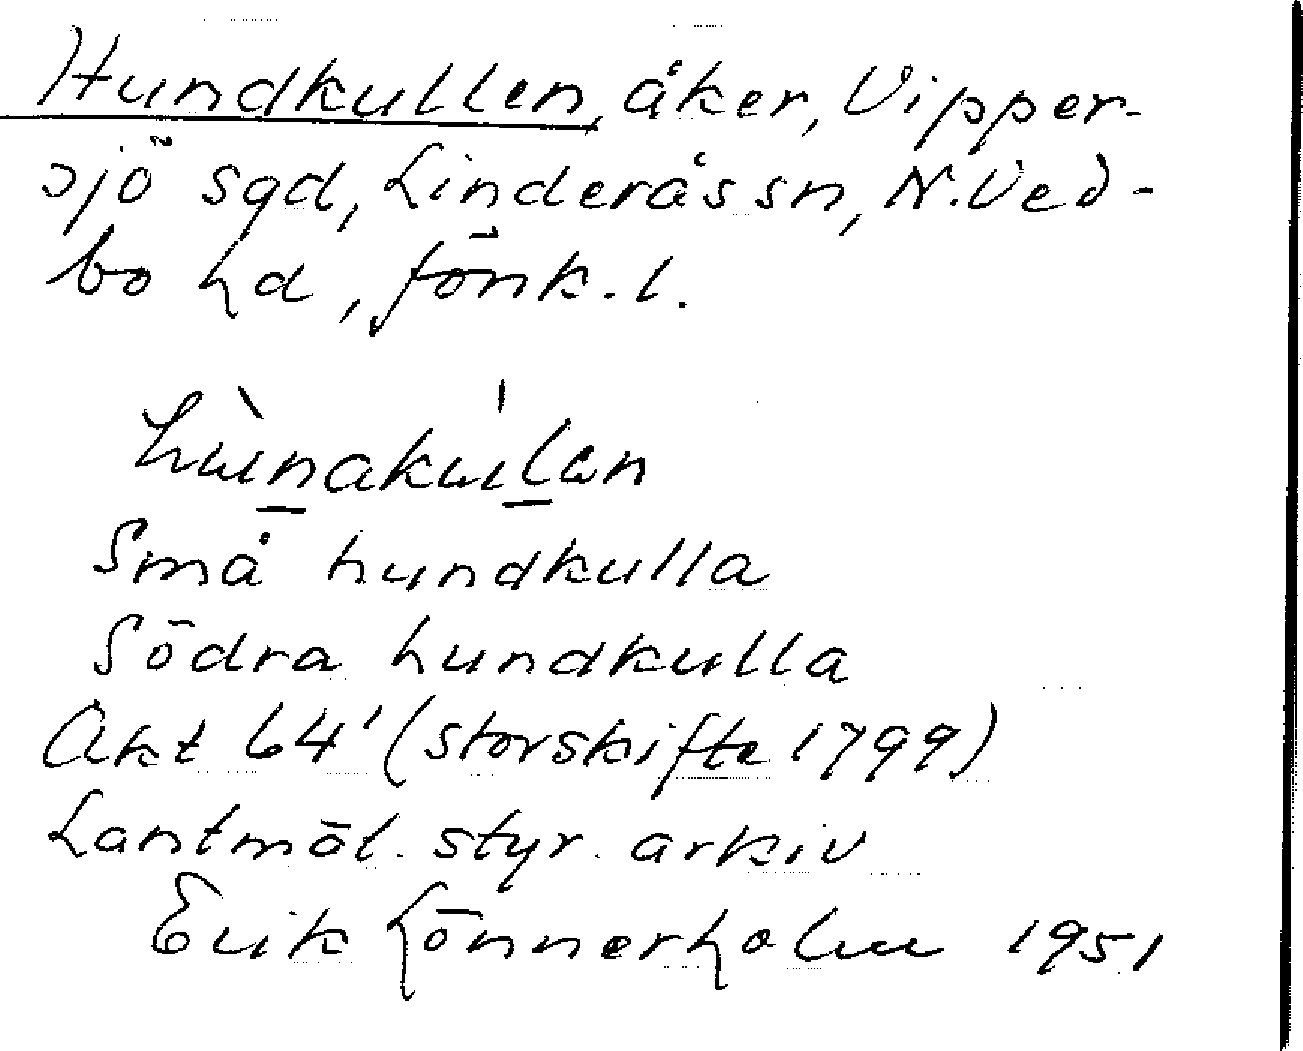 Hundkullen, åker, Vipper-
sjö sgd, Linderås sn, N. Ved-
bo hd, Jönk. l.
Små hundkulla
Södra hundkulla
Akt 64' (storskifte 1799)
Lantmät. styr. arkiv
Erik Lönnerholm 1951